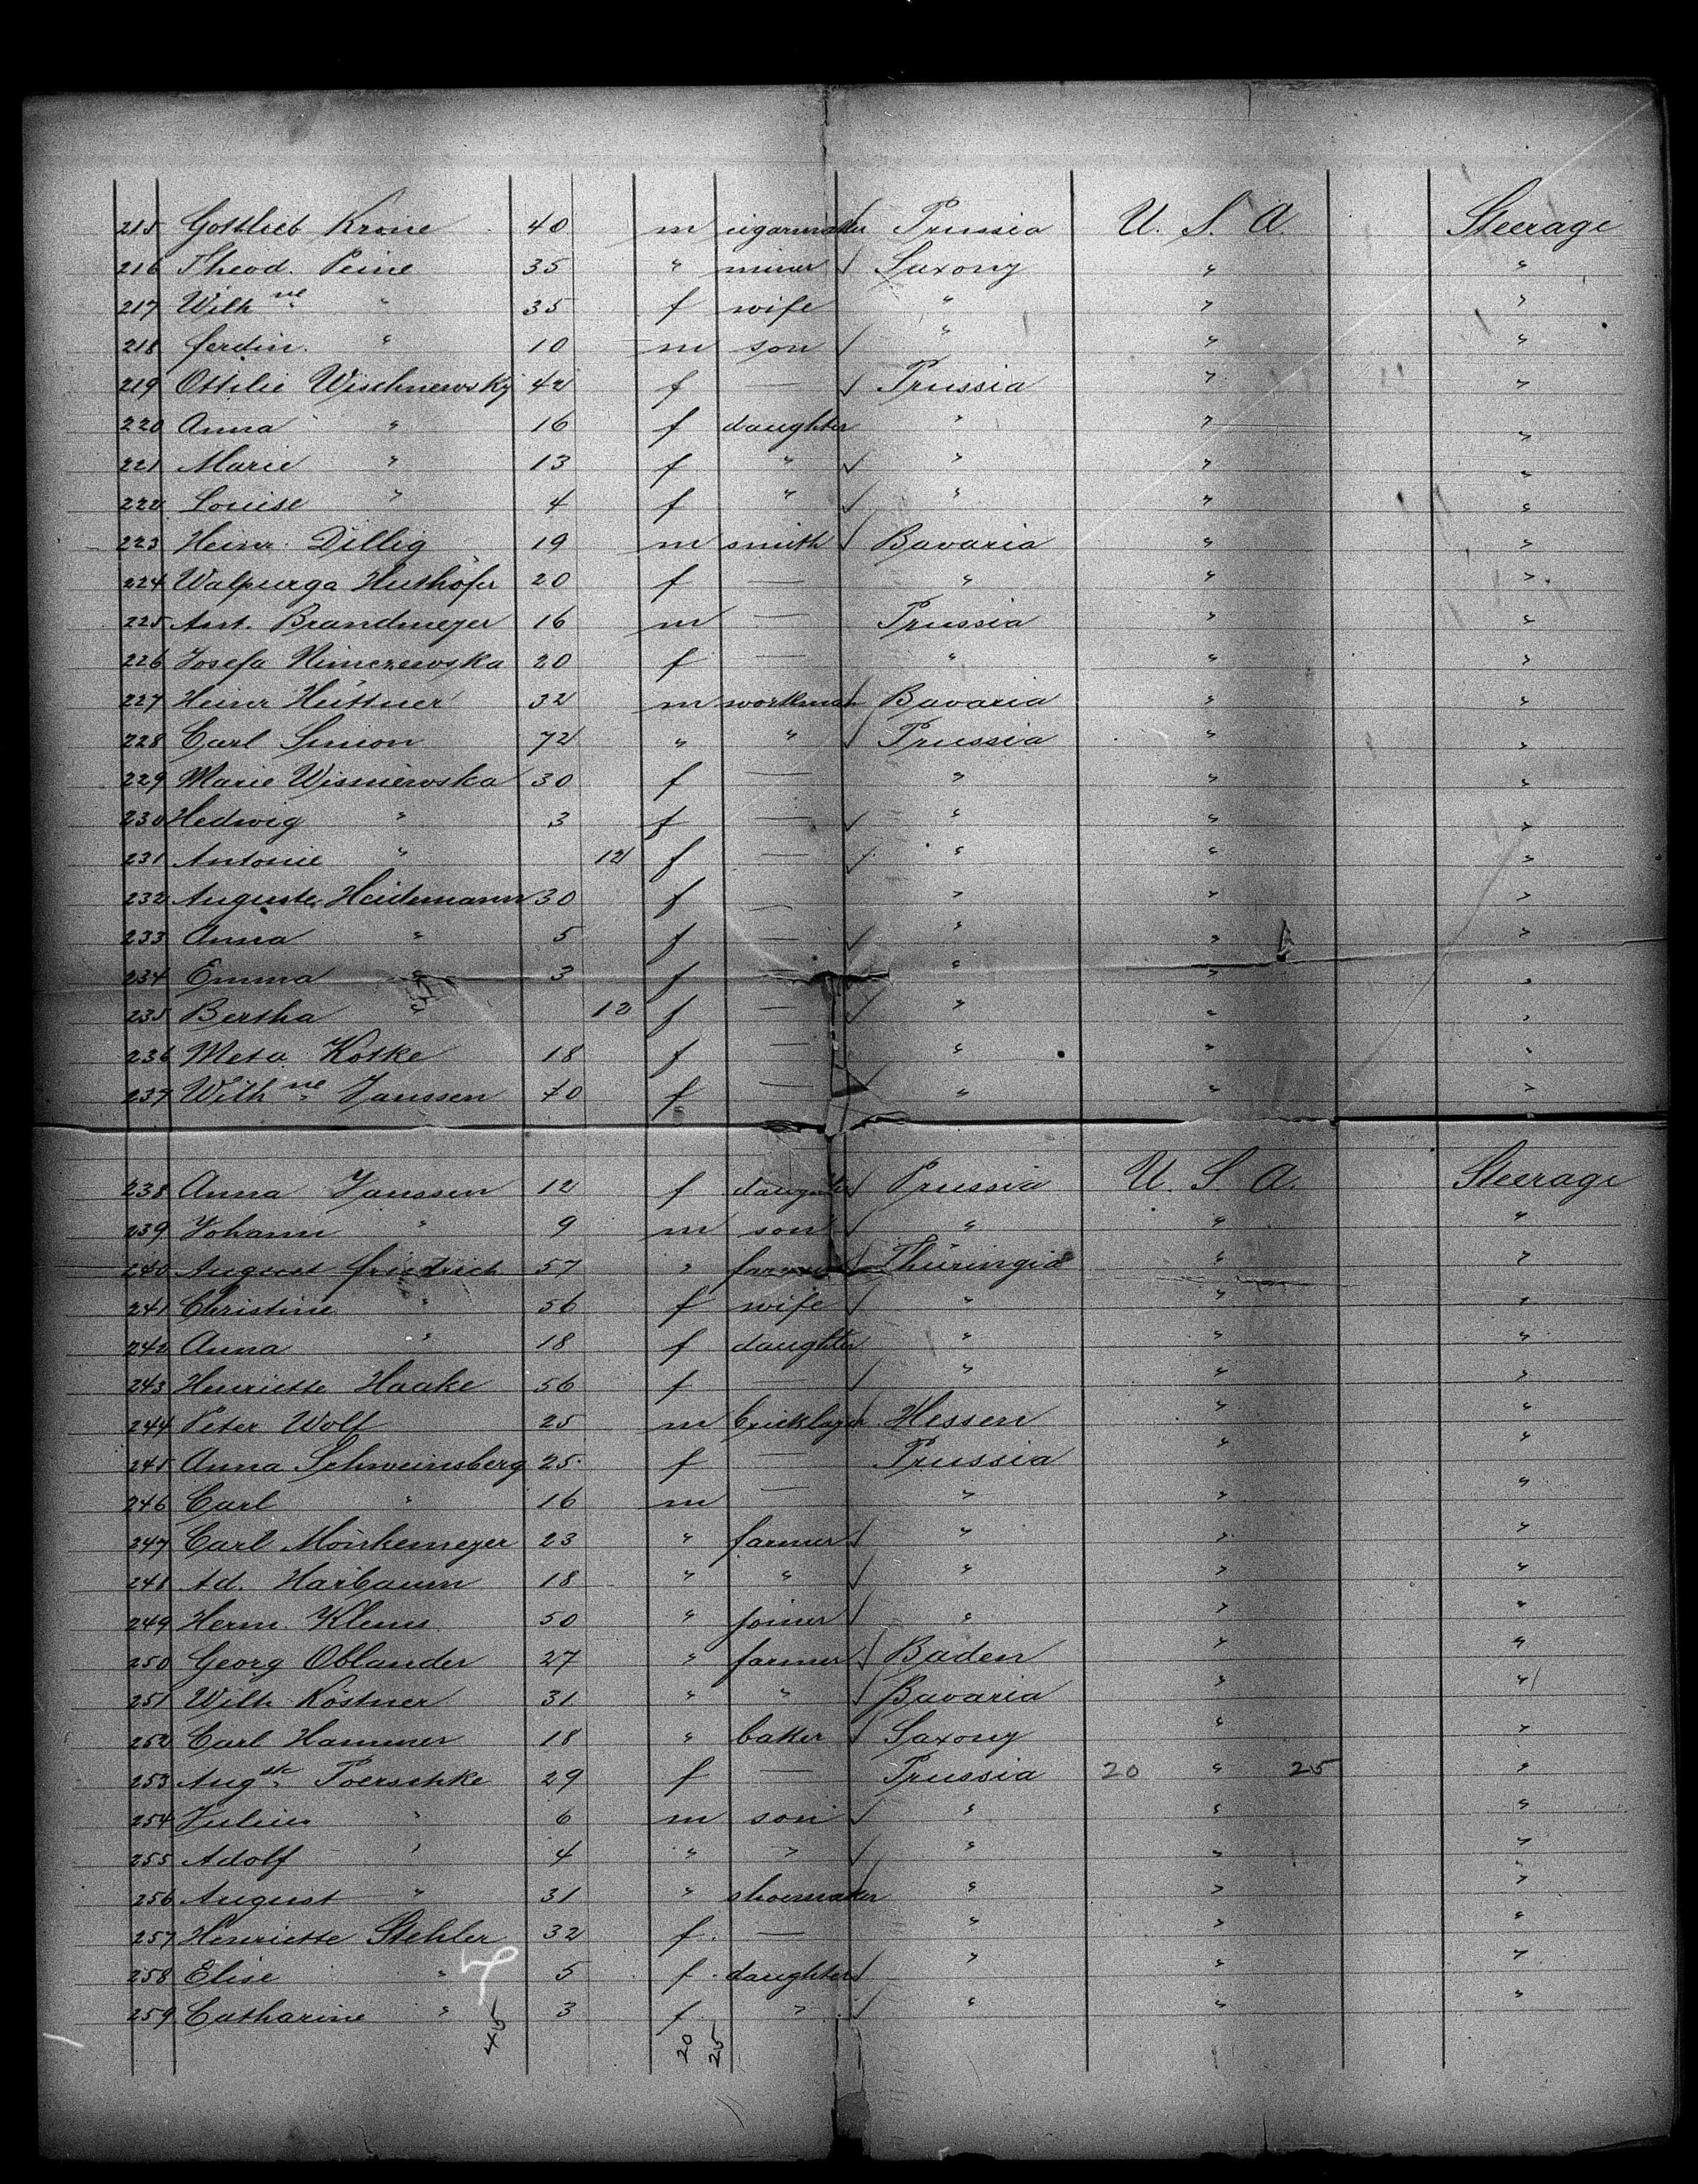 215 Gottlieb Krone 40 m cigarmaker √ Prussia U. S. A. Steerage
216 Theod. Peine 35 " miner √ Saxony " "
217 Wilh ne " 35 f wife " " "
218 ferdin. " 10 m son √ " " "
219 Ottilie Wischnewsky 42 f — √ Prussia " "
220 Anna " 16 f daughter " " "
221 Marie " 13 f " √ " " "
222 Louise " 4 f " √ " " "
223 Heinr. Dillig 19 m smith √ Bavaria " "
224 Walpurga Huthöfer 20 f — " " "
225 Ant. Brandmeyer 16 m — Prussia " "
226 Josefa Nimczewska 20 f — " " "
227 Heinr Hüttner 32 m workman √ Bavaria " "
228 Carl Simon 72 " " √ Prussia " "
229 Marie Wisniewska 30 f — " " "
230 Hedwig " 3 f — √ " " "
231 Antonie " 12 f — √ " " "
232 Auguste Heidemann 30 f — " " "
233 Anna " 5 f — √ " " "
234 Emma " 3 f — " " "
235 Bertha " 12 f — √ " " "
236 Meta Kotke 18 f — " " "
237 Wilh ne Janssen 40 f — " " "
238 Anna Janssen 12 f daughter √ Prussia U. S. A. Steerage
239 Johann " 9 m son √ " " "
240 August friedrich 57 " farmer √ Thüringia " "
241 Christine " 56 f wife √ " " "
242 Anna " 18 f daughter " " "
243 Henriette Haake 56 f — √ " " "
244 Peter Wolf 25 m bricklayer Hessen " "
245 Anna Schweinsberg 25 f — Prussia " "
246 Carl " 16 m — " " "
247 Carl Mönkemeyer 23 " farmer √ " " "
248 Ad. Harbaum 18 " " √ " " "
249 Herm. Klems 50 " joiner √ " " "
250 Georg Oblander 27 " farmer √ Baden " "
251 Wilh Köstner 31 " " √ Bavaria " "
252 Carl Hammer 18 " baker √ Saxony " "
253 Aug ste Poerschke 29 f — Prussia 20 " 25 "
254 Julius " 6 m son √ " " "
255 Adolf " 4 " " √ " " "
256 August " 31 " shoemaker " " "
257 Henriette Stehler 32 f. — " " "
258 Elise " 5 f. daughter √ " " "
259 Catharine " 3 f. " √ " " "
45 20 25